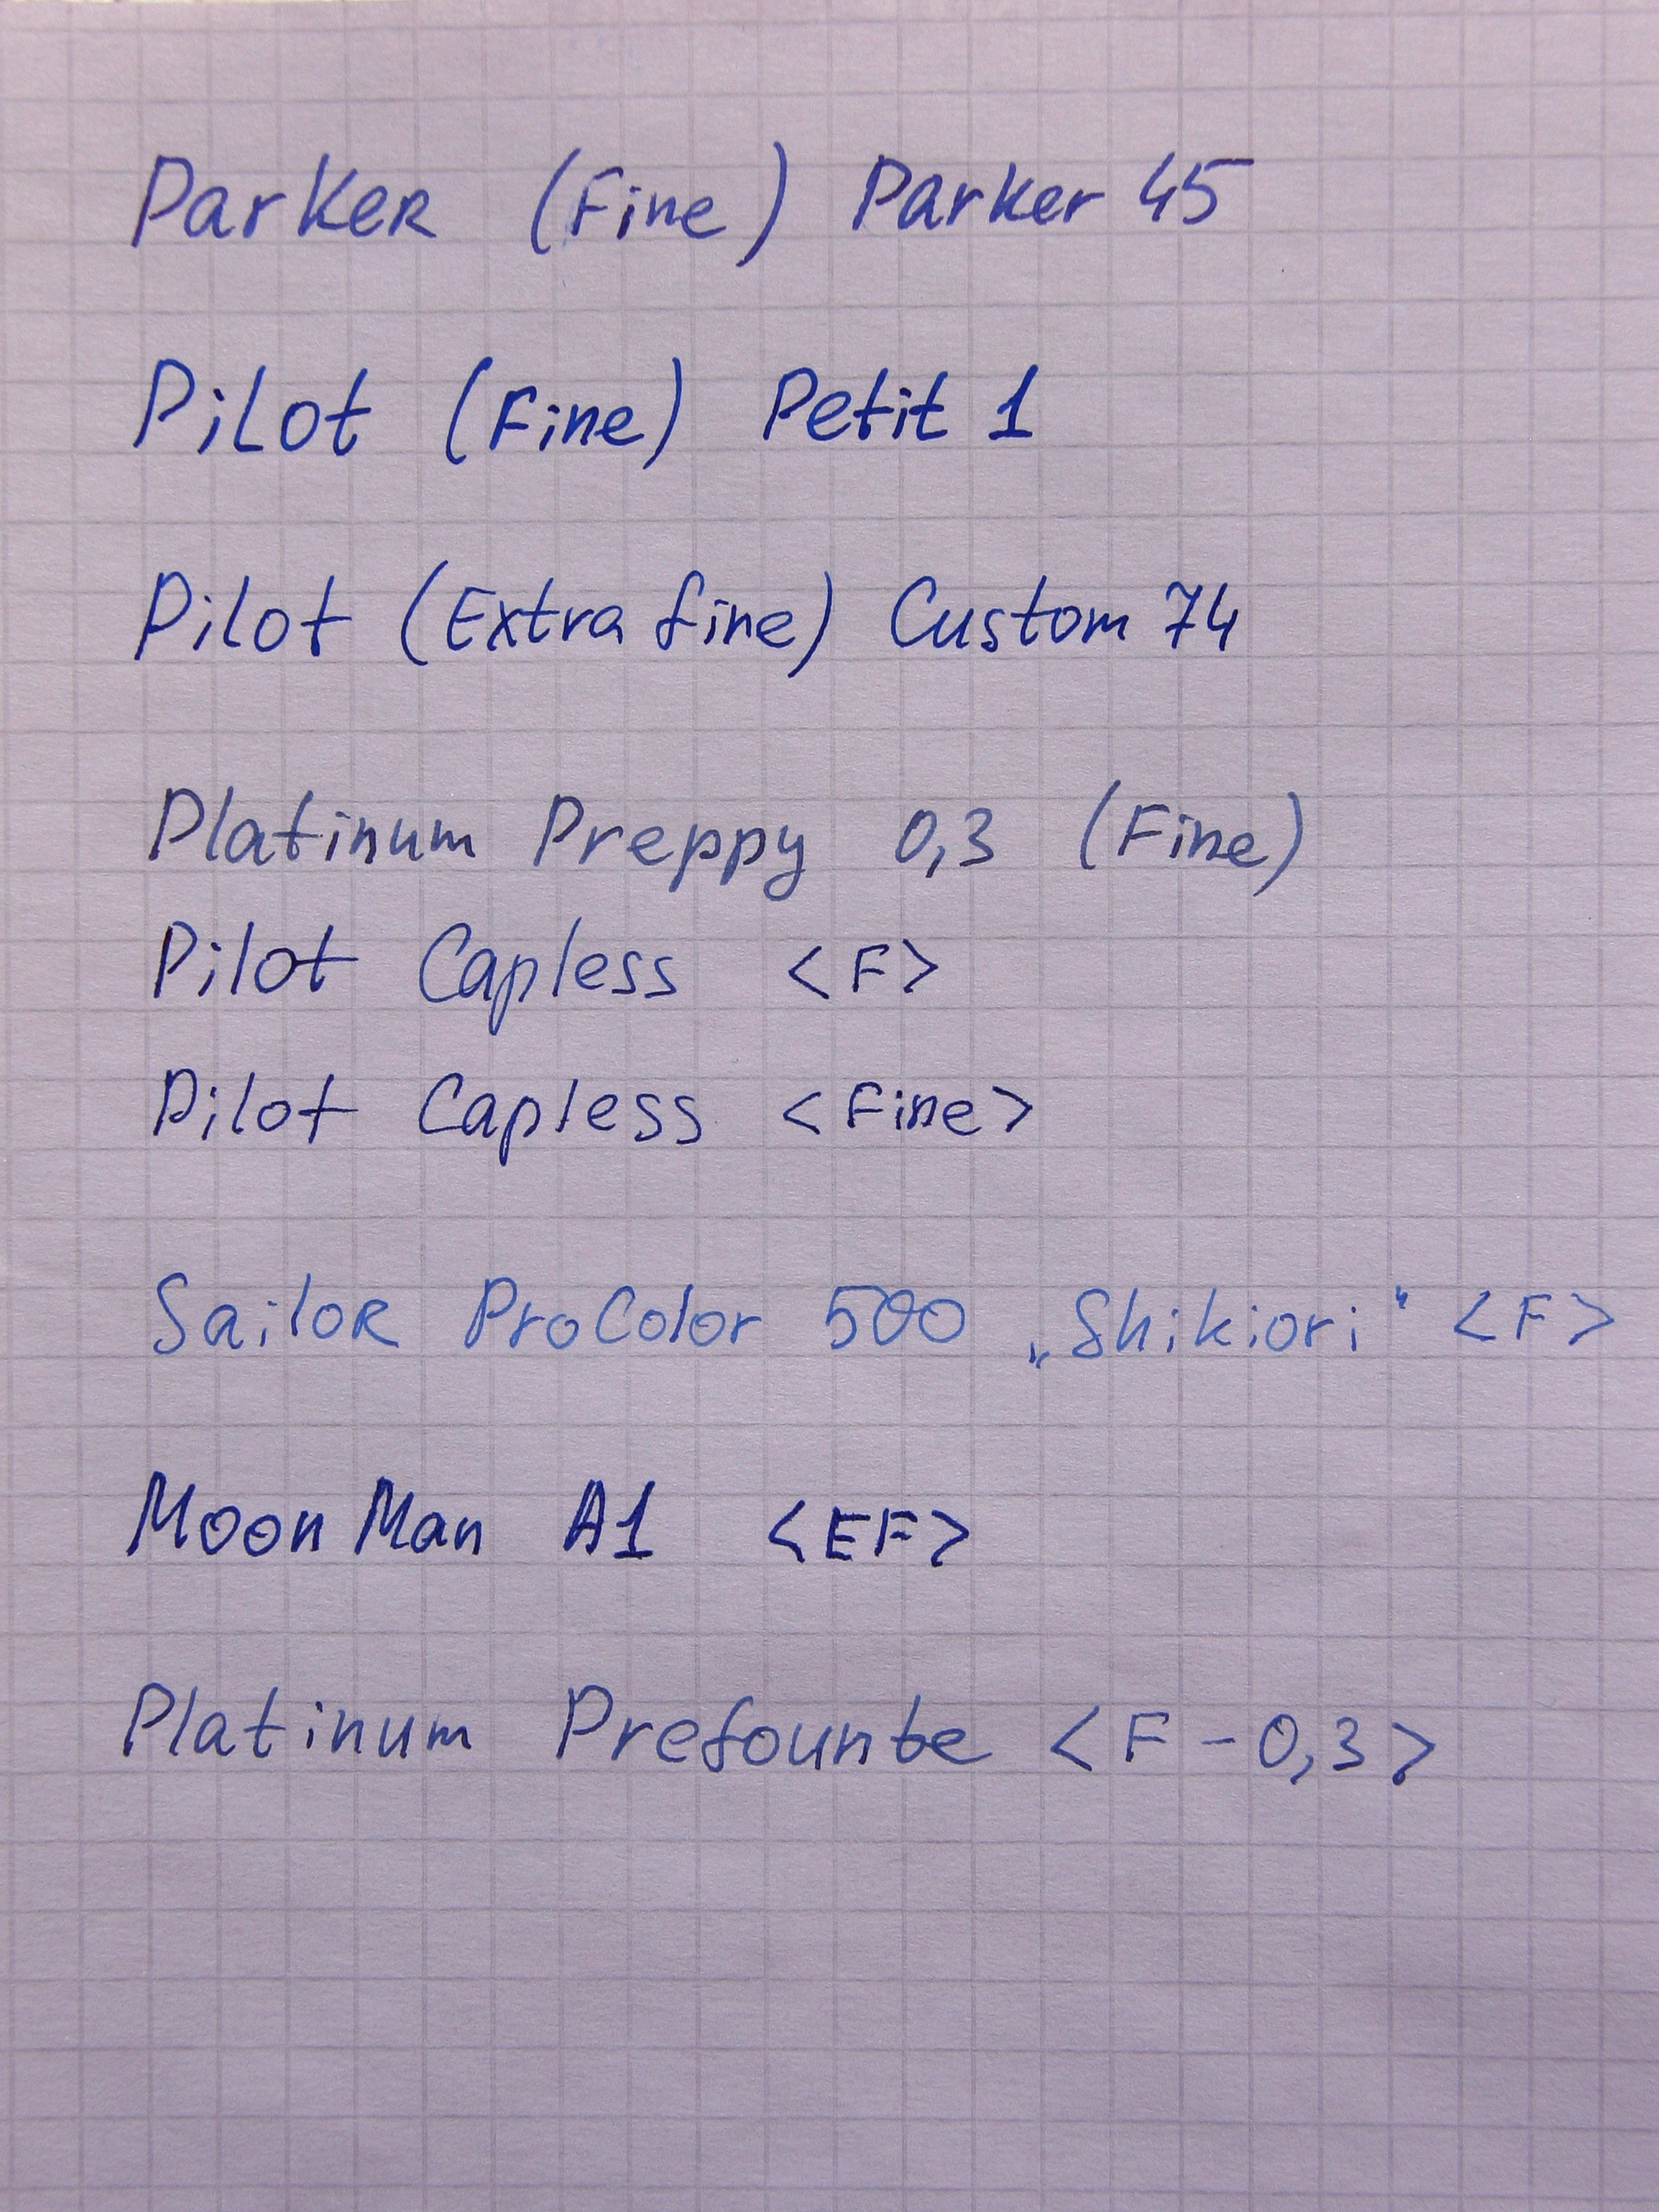 Parker (Fine) Parker 45
Pilot (Fine) Petit 1
Pilot (Extra fine) Custom 74
Platinum Preppy 0,3 (Fine)
Pilot Capless <F>
Pilot Capless <Fine>
Sailor ProColor 500 „Shikiori“ <F>
Moon Man A1 <EF>
Platinum Prefounte <F - 0,3>